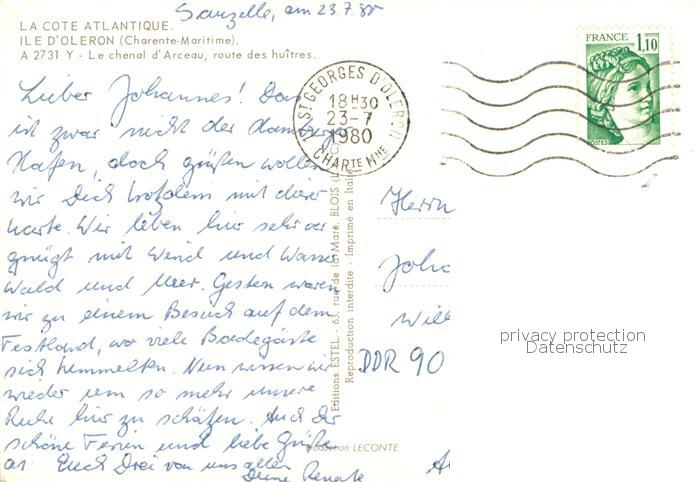 Sauzelle, am 23.7.80
LA COTE ATLANTIQUE.
ILE D'OLERON (Charente-Maritime).
A 2731 Y - Le chenal d'Arceau, route des huîtres.
Lieber Johannes! Das
ist zwar nicht der Hamburger
Hafen, doch grüßen wollen
wir Dich trotzdem mit dieser
Karte. Wir leben hier sehr ver
gnügt mit Wind und Wasser
Wald und Meer. Gestern waren
wir zu einem Besuch auf dem
Festland, wo viele Badegäste
sich tummelten. Nun wissen wir
wieder um so mehr unsere
Ruhe hier zu schätzen. Auch Dir
schöne Ferien und liebe Grüße
an Euch Drei von uns allen
Deine Renate
17 ST GEORGES D'OLERON
18H30
23-7
1980
CHARTE MME
FRANCE
1,10
POSTES
Editions ESTEL - 63, rue de la Mare, BLOIS
Reproduction interdite - Imprimé en Italie
Production LECONTE
Herrn
Joha
Will
DDR 90
privacy protection
Datenschutz